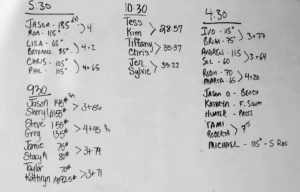 5:30
JASON - 135
ROB - 115
> 4
LISA - 65#
BETHANIE - 85#
> 4+2
CHRIS - 105#
PHIL - 105#
> 4+65
9:30
Jason 145#
Sheryl 55#
Steve 155#
Greg 135#
Jamie 70#
Stacy 80#
> 3+79
Taylor 70#
Kathryn 92.5#
> 3+71
10:30
Tess
Kim
> 28:57
Tiffany
Chris
> 30:37
Jen
Sylvie
> 30:22
4:30
IVO - 115#
BRIM - 75#
> 3+77
ANDREW - 115
SUE - 60
> 3+64
ROBIN - 70
MARTA - 65
> 4+20
JASON O - BENCH
KATHRYN - F. SQUAT
HUNTER - PRESS
TAMI
ROBERTA
> 75
MICHAEL - 105# - 5 RDS